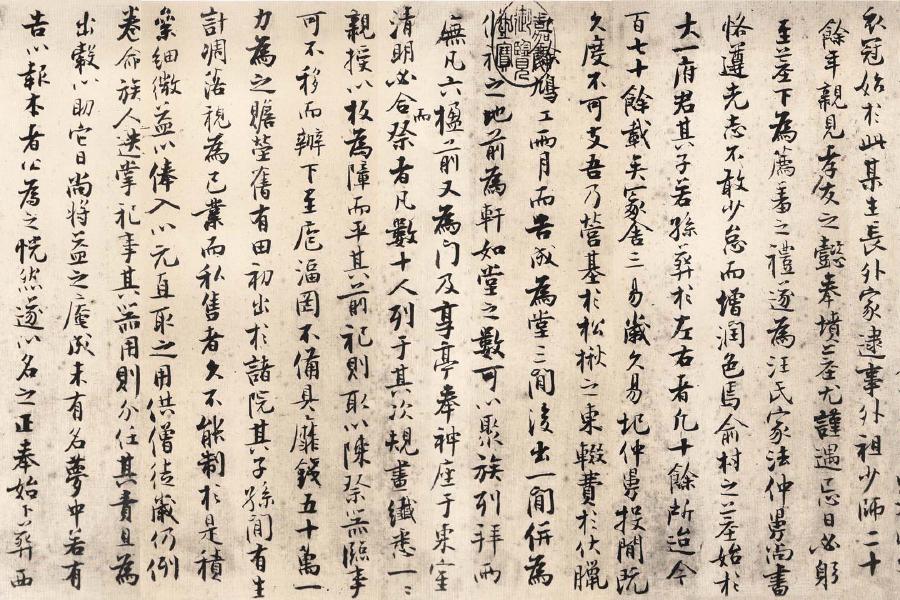 衣冠始於此某生長外家逮事外祖少師二十
餘年親見孝友之懿奉墳茔尤謹遇忌日必躬
至茔下為薦羞之禮遂為汪氏家法仲舅尚書
恪遵先志不敢少怠而增潤色焉俞村之茔始於
大一府君其子若孫葬於左右者凡十餘所迨今
百七十餘載矣冢舍三易歲久易圯仲舅投閒既
久度不可支吾乃營基於松楸之東輟費於伏臘
餘鳩工兩月而告成為堂三間後出一間併為
脩祠之地前為軒如堂之數可以聚族列拜兩
廡凡六楹而前又為門及享亭奉神座于東室
清明必合祭者凡數十人列于其次規畫纖悉一一
親授以板為障而平其前祀則取以陳祭器臨事
可不移而辦下至庖湢罔不備具靡錢五十萬一
力為之贍塋舊有田初出於諸院其子孫間有生
計凋落視為己業而私售者久不能制於是積
絫細微益以俸入以元直取之用供僧徒歲仍例
卷命族人迭掌祀事其器用則分任其責且為
出穀以助它日尚將益之庵成未有名夢中若有
告以報本者公為之怳然遂以名之正奉始卜葬西